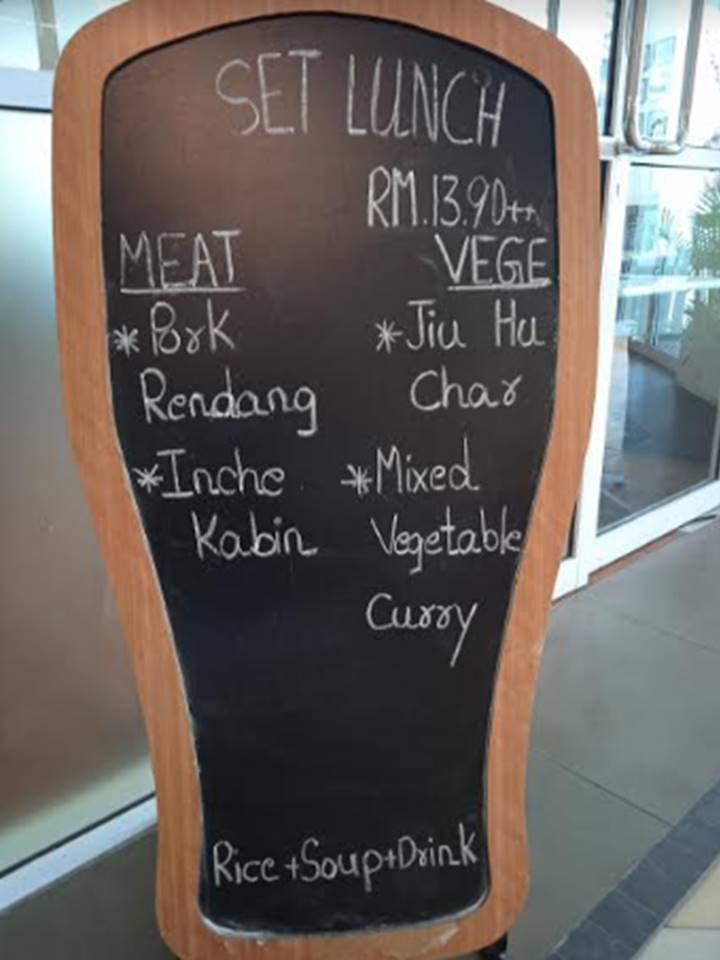 SET LUNCH
RM.13.90++
MEAT
*Pork
Rendang
*Inche
Kabin
VEGE
*Jiu Hu
Char
*Mixed
Vegetable
Curry
Rice+Soup+Drink